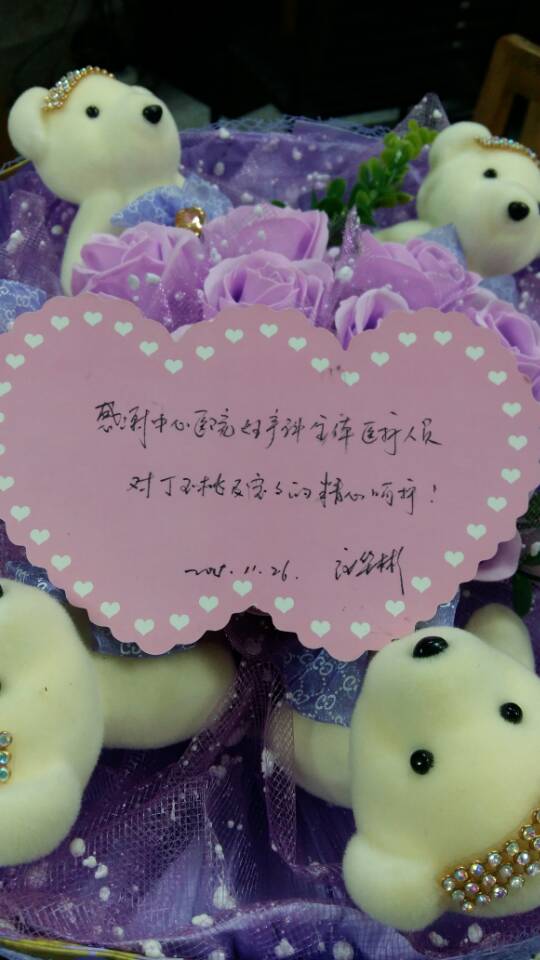 感谢中心医院妇产科全体医护人员
对丁玉桃及宝宝的精心呵护!
2015.11.26.